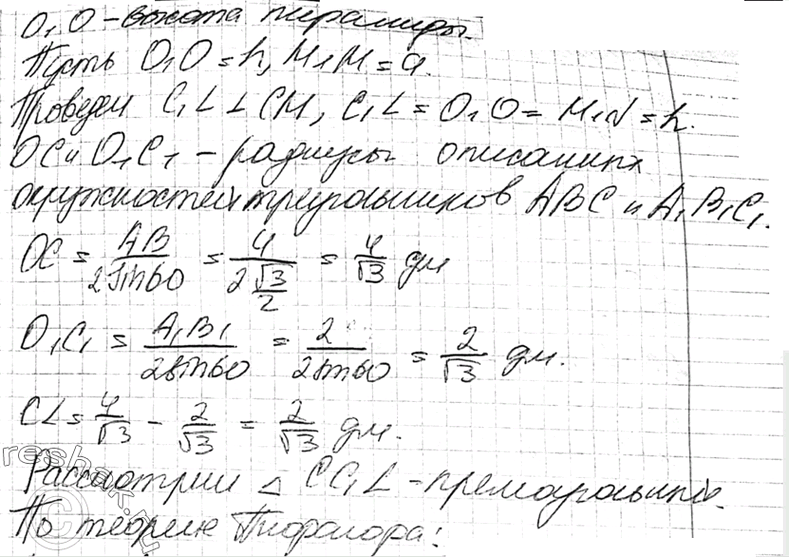 O₁O - высота пирамиды.
Пусть O₁O = h, M₁M = a.
Проведем C₁L ⊥ CM, C₁L = O₁O = M₁N = h.
OC и O₁C₁ - радиусы описанных
окружностей треугольников ABC и A₁B₁C₁.
OC = AB / 2sin60 = 4 / (2 √3/2) = 4/√3 дм
O₁C₁ = A₁B₁ / 2sin60 = 2 / 2sin60 = 2/√3 дм.
CL = 4/√3 - 2/√3 = 2/√3 дм.
Рассмотрим △ CC₁L - прямоугольный.
По теореме Пифагора:
reshak.ru
©